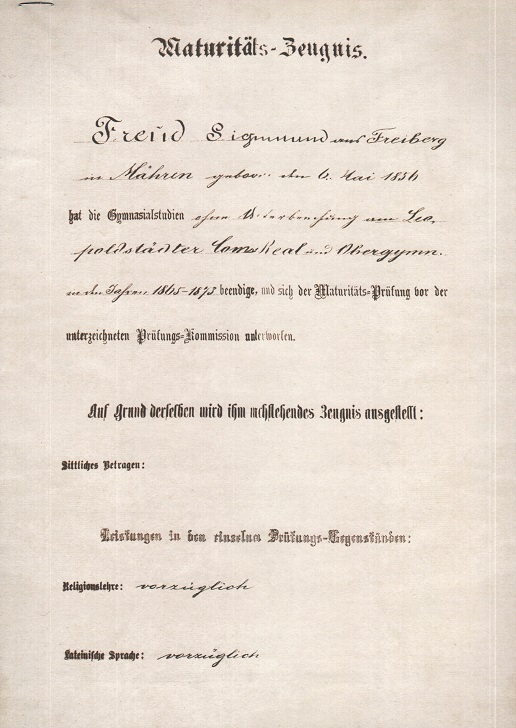 Maturitäts-Zeugnis.
Freud Sigmund aus Freiberg
in Mähren geboren den 6. Mai 1856
hat die Gymnasialstudien ohne Unterbrechung am Leo-
poldstädter Com. Real und Obergymn.
in den Jahren 1865-1873 beendige, und sich der Maturitäts-Prüfung vor der
unterzeichneten Prüfungs-Kommission unterworfen.
Auf Grund derselben wird ihm nchstehendes Zeugnis ausgestellt:
Sittliches Betragen:
Leistungen in den einzelnen Prüfungs-Gegenständen:
Religionslehre: vorzüglich
Lateinische Sprache: vorzüglich